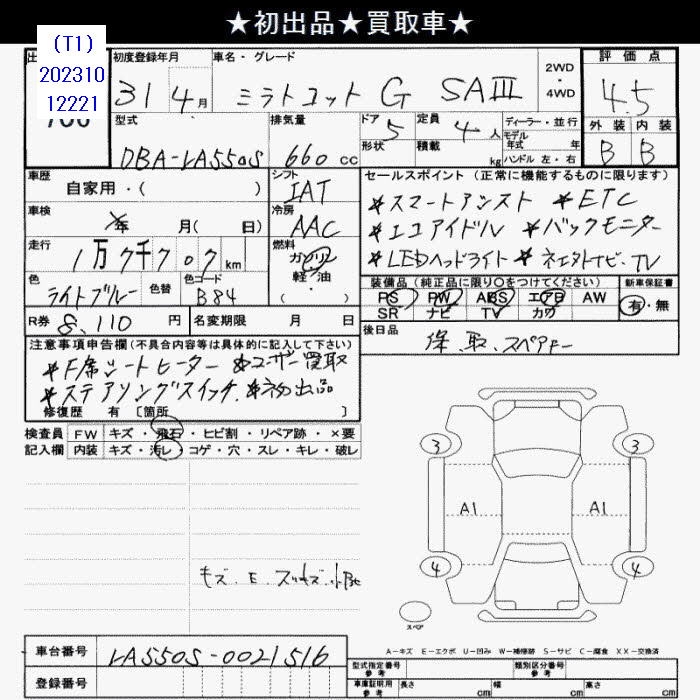 ★初出品★買取車★
(T1)
202310
12221
初度登録年月
31 4月
車名・グレード
ミラトコット G SAⅢ
2WD
・
4WD
評価点
4.5
外装 内装
B B
型式
DBA-LA550S
排気量
660 cc
ドア 5
形状
定員 4 人
積載 kg
ディーラー・並行
モデル年式 年
ハンドル 左・右
車歴
自家用・( )
シフト
IAT
車検
年 月( 日)
冷房
AAC
走行
1万7千707km
燃料
ガソリン
軽・油
( )
色
ライトブルー
色替
色コード
B84
R券 8,110 円
名変期限 月 日
セールスポイント(正常に機能するものに限ります)
＊スマートアシスト ＊ETC
＊エコアイドル ＊バックモニター
＊LEDヘッドライト ＊ TV
装備品(純正品に限り○をつけてください)
PS PW ABS エアB AW
SR ナビ TV カワ
新車保証書
有・無
後日品
保、取、スペアキー
注意事項申告欄(不具合内容等は具体的に記入して下さい)
＊F席シートヒーター ＊ユーザー買取
＊ステアリングスイッチ ＊初出品
修復歴 有 [箇所 ]
検査員 FW キズ・飛石・ヒビ割・リペア跡・×要
記入欄 内装 キズ・汚レ・コゲ・穴・スレ・キレ・破レ
キズ、E、
3 3
A1 A1
4 4
スペア
A－キズ E－エクボ U－凹み W－補修跡 S－サビ C－腐食 XX－交換済
車台番号 LA550S-0021516
登録番号
型式指定番号
参考
類別区分番号
参考
車庫証明用
参考
長さ cm 幅 cm 高さ cm